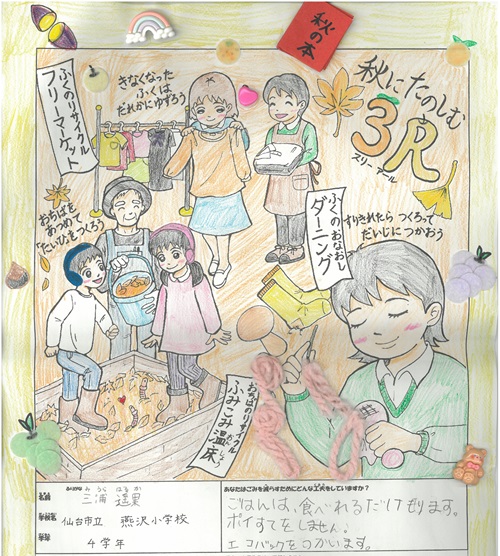 秋の本
秋にたのしむ
3R
スリーアール
ふくのリサイクル
フリーマーケット
きなくなった
ふくは
だれかにゆずろう
おちばを
あつめて
「たいひ」をつくろう
ふくのおなおし
ダーニング
すりきれたら つくろって
だいじにつかおう
おちばのリサイクル
ふみこみ温床
おんしょう
みうら はるか
三浦 遥里
仙台市立 燕沢小学校
4学年
あなたはごみを減らすためにどんな工夫をしていますか?
ごはんは、食べれるだけもります。
ポイすてをしません。
エコバックをつかいます。